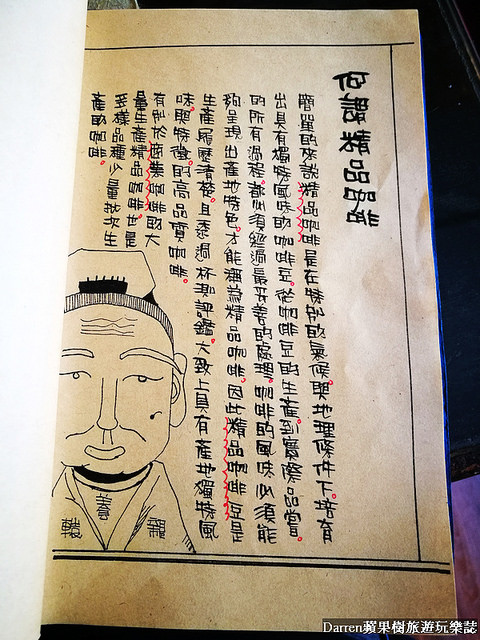 精品
簡單的來說精品咖啡是在特別的氣候。與地理條件下。培育
出具有獨特風味的咖啡豆。從咖啡豆的生產。到實際品嘗。
的所有過程。都必須經過最妥善的處理。咖啡的風味必須能
夠呈現出產地特色。才能稱為精品咖啡。因此精品咖啡豆是
生產履歷清楚。且透過杯測評鑑。大致上具有產地獨特風
味。與特徵的高品質咖啡。
有別於商業咖啡的大
量生產。精品咖啡。也是
多樣品種少量批次生
產的咖啡。
善
Darren蘋果樹旅遊玩樂誌